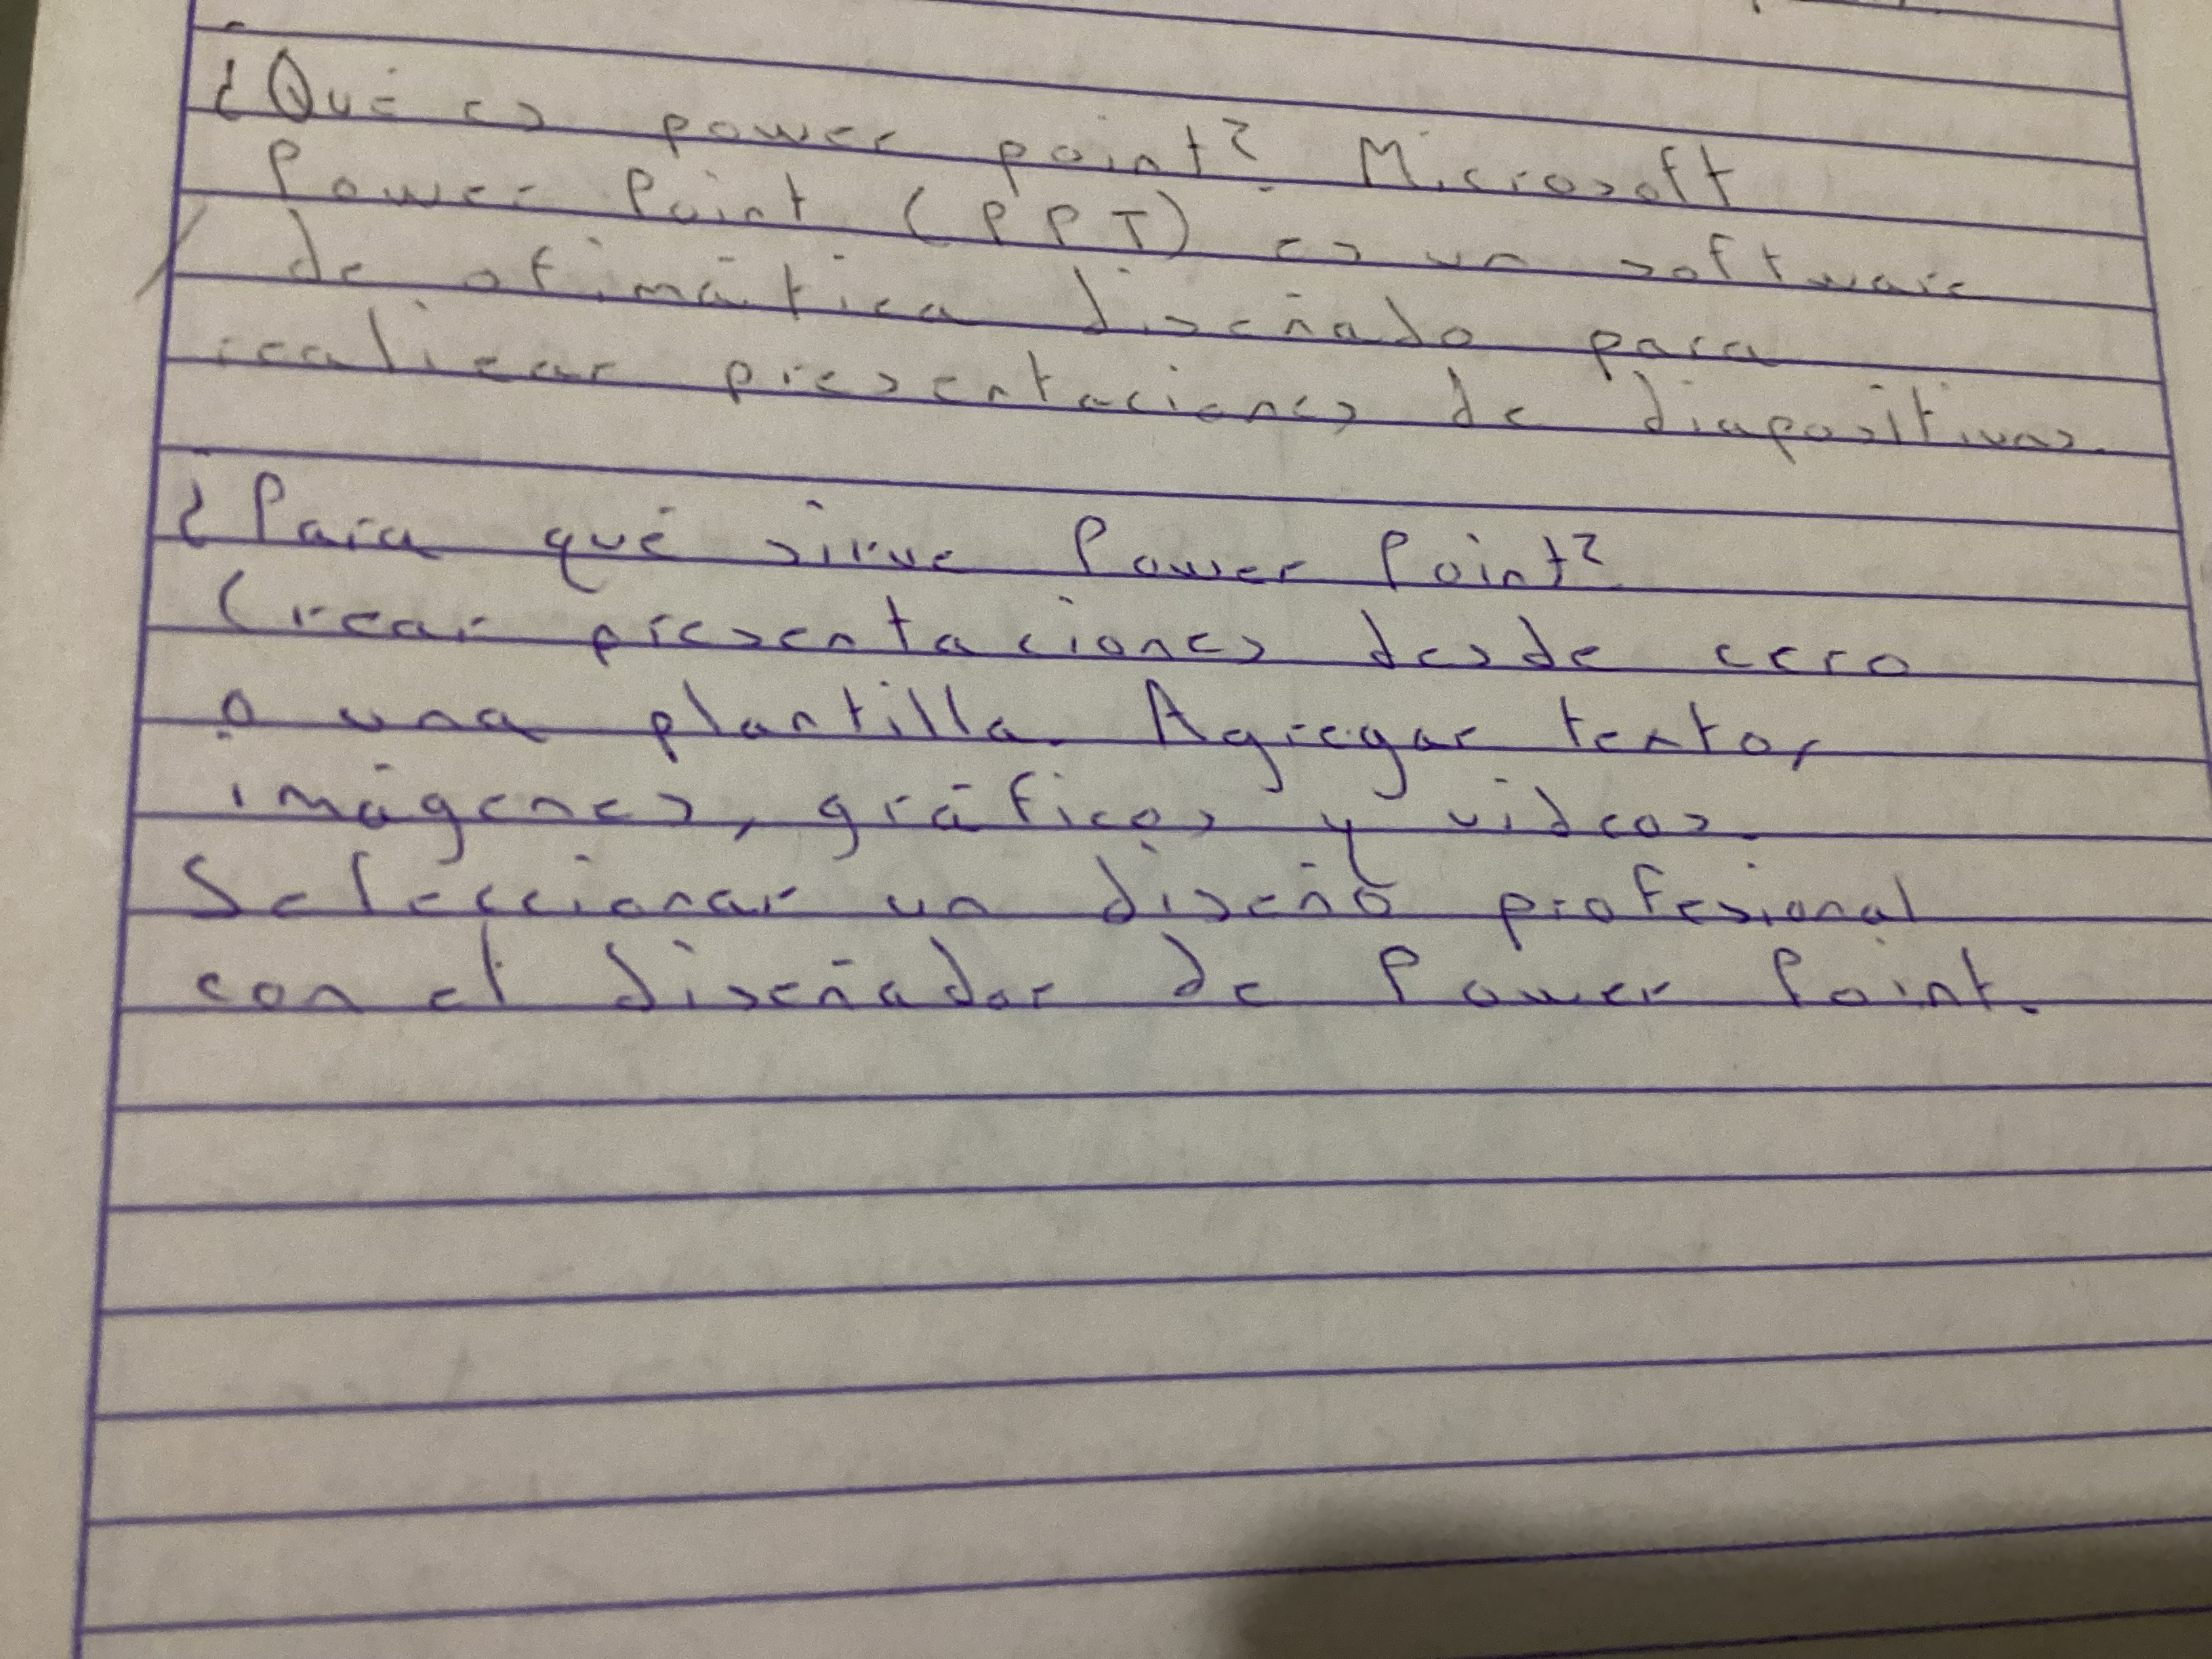 ¿Qué es power point? Microsoft
Power Point (PPT) es un software
de ofimática diseñado para
realizar presentaciones de diapositivas.
¿Para qué sirve Power Point?
Crear presentaciones desde cero
o una plantilla. Agregar texto,
imágenes, gráficos y videos.
Seleccionar un diseño profesional
con el diseñador de Power Point.